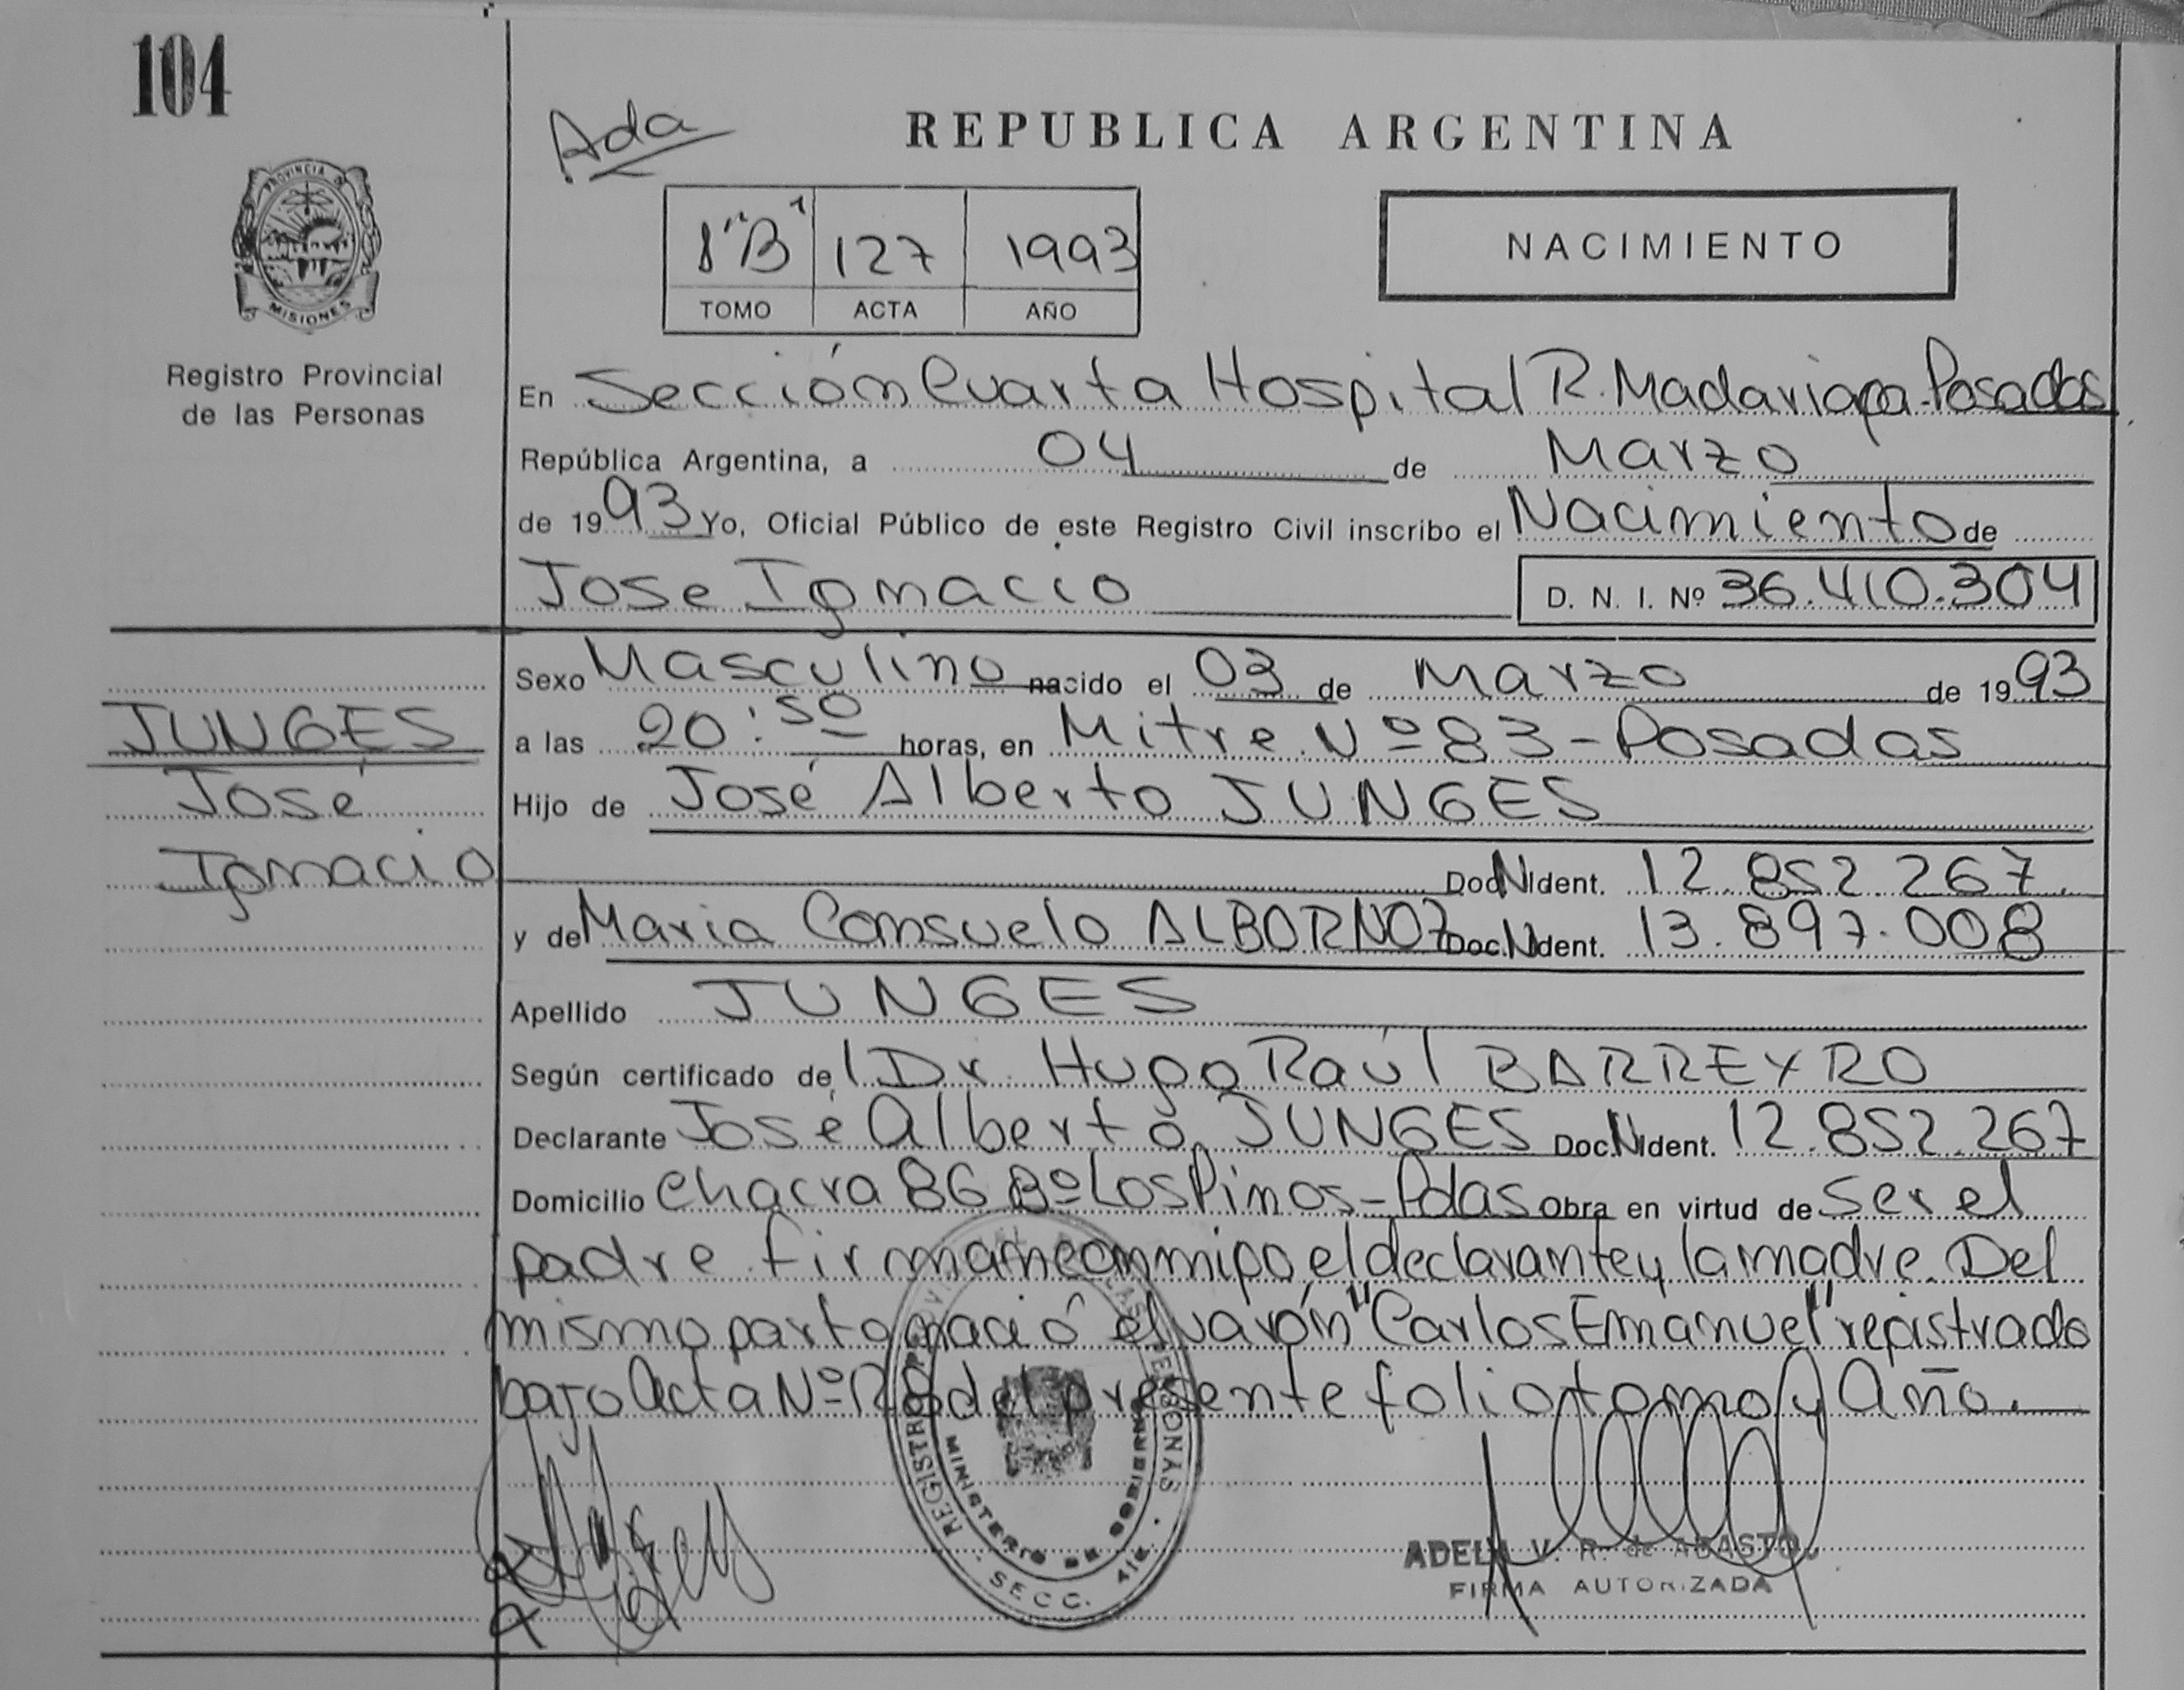 104
Ada
REPUBLICA ARGENTINA
PROVINCIA DE
MISIONES
Registro Provincial
de las Personas
1"B" 127 1993
TOMO ACTA AÑO
NACIMIENTO
En Sección Cuarta Hospital R. Madariaga-Posadas
República Argentina, a 04 de Marzo
de 1993 Yo, Oficial Público de este Registro Civil inscribo el Nacimiento de
Jose Ignacio D. N. I. Nº 36.410.304
Sexo Masculino nacido el 03 de Marzo de 1993
JUNGES
a las 20:50 horas, en Mitre Nº 83-Posadas
José
Hijo de José Alberto JUNGES
Ignacio
Doc N Ident. 12.852.267.
y de Maria Consuelo ALBORNOZ Doc. N Ident. 13.897.008
Apellido JUNGES
Según certificado del Dr. Hugo Raúl BARREYRO
Declarante José Alberto JUNGES Doc. N Ident. 12.852.267
Domicilio Chacra 86 Bº Los Pinos-Pdas Obra en virtud de ser el
padre firman conmigo el declarante y la madre. Del
mismo parto nació el varón "Carlos Emanuel" registrado
bajo Acta Nº 128 del presente folio tomo y Año.
REGISTRO PROVINCIAL DE LAS PERSONAS
MINISTERIO DE GOBIERNO
SECC. 4ta.
ADELA V. R. de ABASTO
FIRMA AUTORIZADA